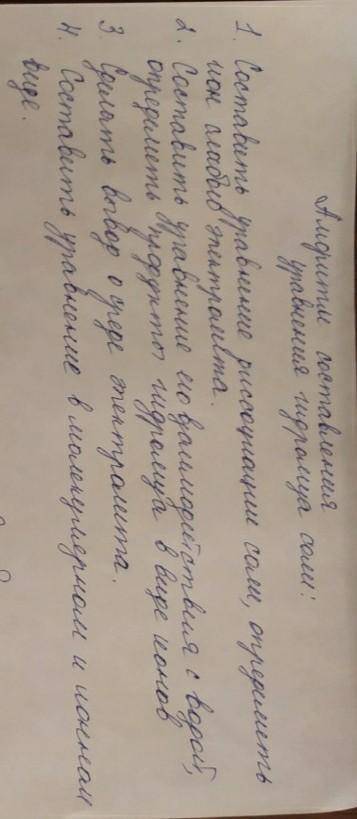 Алгоритм составления
уравнения гидролиза соли:
1. Составить уравнение диссоциации соли, определить
ион слабого электролита.
2. Составить уравнение его взаимодействия с водой,
определить продукты гидролиза в виде ионов
3. Сделать вывод о среде электролита.
4. Составить уравнение в молекулярном и ионном
виде.